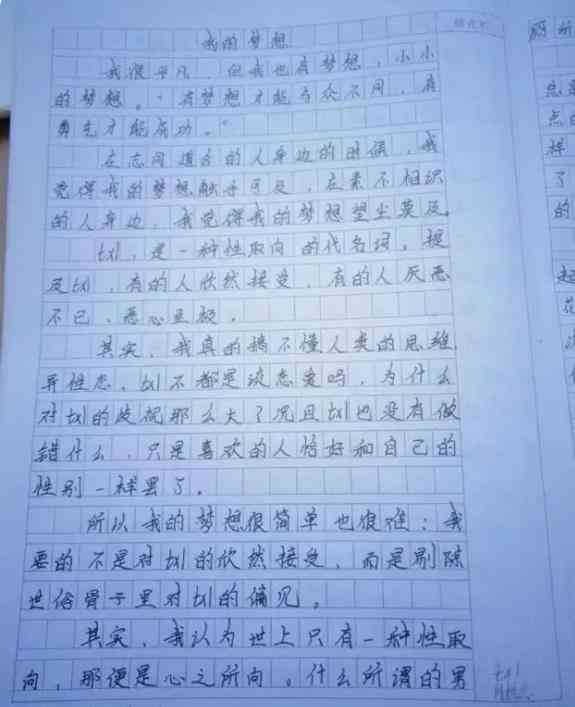 我的梦想
我很平凡，但我也有梦想，小小
的梦想。“有梦想才能与众不同，有
勇气才能成功。”
在志同道合的人身边的时候，我
觉得我的梦想触手可及，在素不相识
的人身边，我觉得我的梦想望尘莫及。
txl，是一种性取向的代名词，提
及txl，有的人欣然接受，有的人厌恶
不已、恶心至极。
其实，我真的搞不懂人类的思维，
异性恋、txl不都是谈恋爱吗，为什么
对txl的歧视那么大？况且txl也没有做
错什么，只是喜欢的人恰好和自己的
性别一样罢了。
所以我的梦想很简单也很难：我
要的不是对txl的欣然接受，而是剔除
世俗骨子里对txl的偏见。
其实，我认为世上只有一种性取
向，那便是心之所向。什么所谓的男
点
样
了
的
起
花